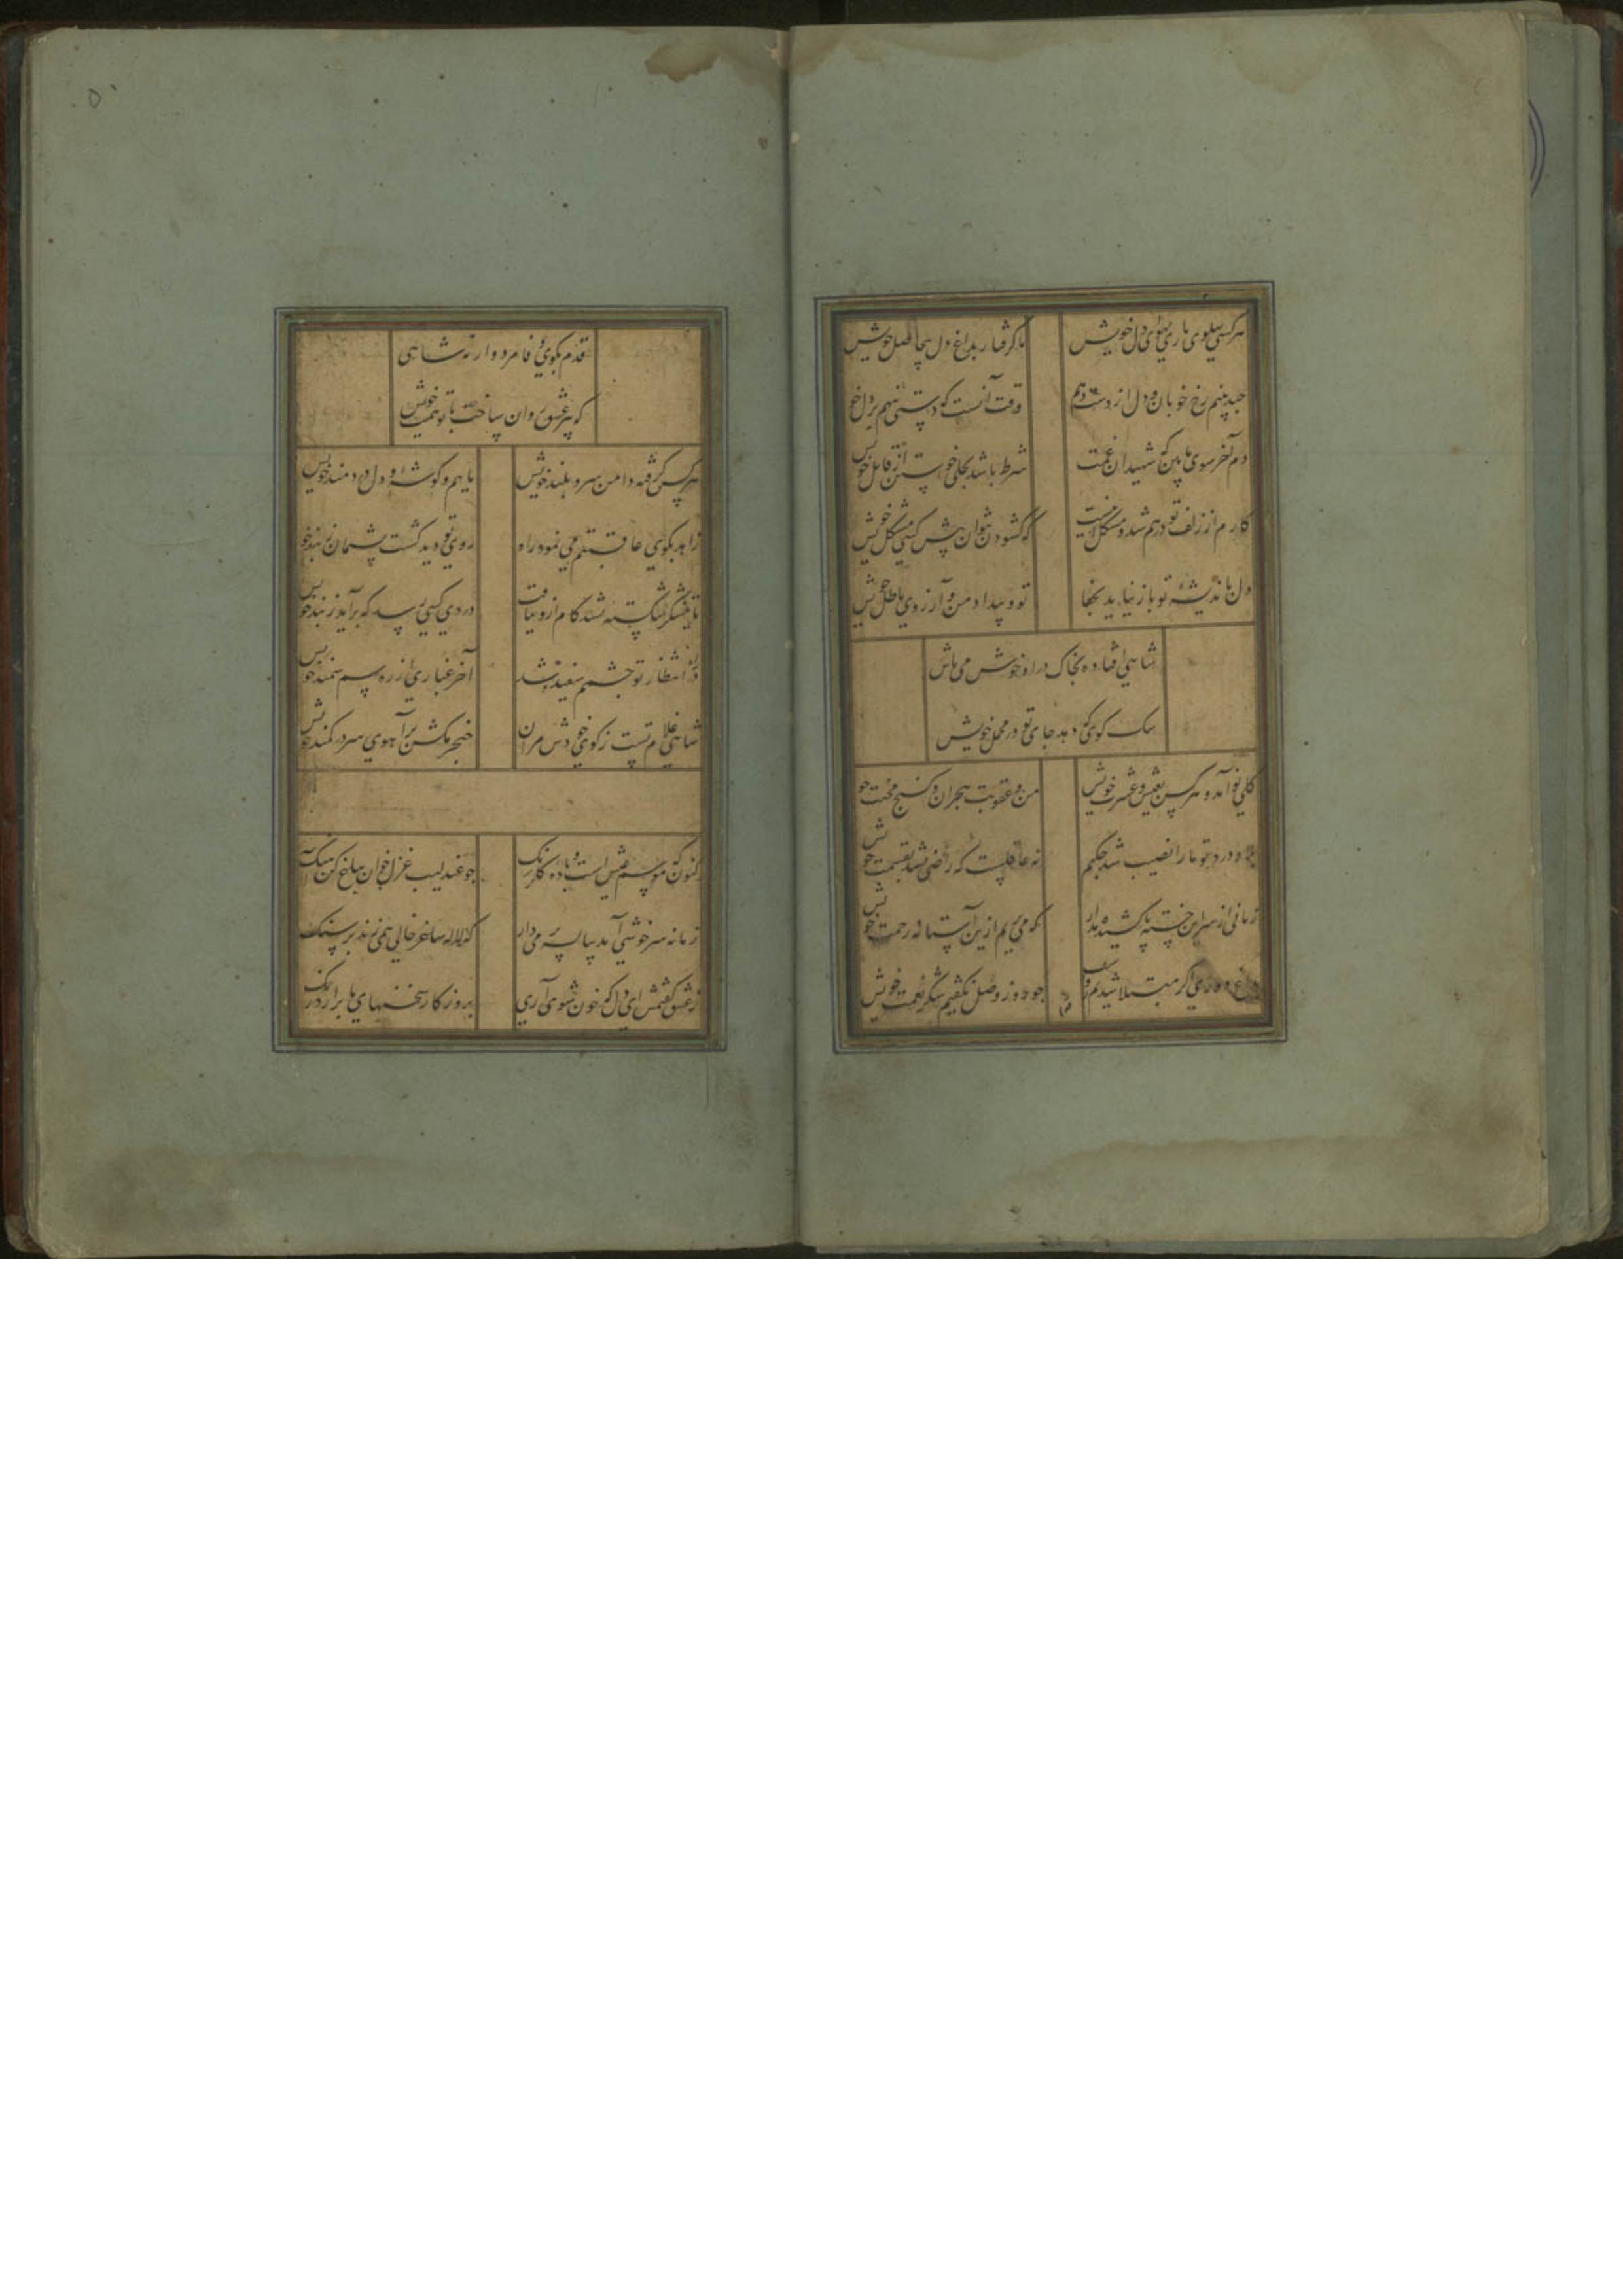 هر کسی پهلوی یاری بهوای دل خویش
ما گرفتار بداغ دل بیحاصل خویش
چند بینم رخ خوبان و دل از دست دهم
وقت آنست که دستی بنهم بر دل خویش
دم آخر سوی ما بین که شهیدان غمت
شرط باشد بحلی خواستن از قاتل خویش
کارم از زلف تو درهم شد و مشکل اینست
که گشودن نتوان پیش کسی مشکل خویش
دل باندیشه تو باز نیاید بخفا
تو و بیداد و من و آرزوی باطل خویش
شاهی افتاده بخاک در او خوش می باش
سک کوی که دهد جای تو در محفل خویش
گلی نو آمد و هر کس بعیش و عشرت خویش
من و عقوبت هجران و کنج محنت خویش
چو درد تو ما را نصیب شد چکنم
نه عاقلست که راضی نشد بقسمت خویش
زمانی از سر این خسته پا کشیده مدار
که می بریم ازین آستانه زحمت خویش
بداغ دوری اگر مبتلا شدیم رواست
چو روز وصل نگفتیم شکر نعمت خویش
قدم
قدم بکوی وفا مردوار نه شاهی
که پیر عشق روان ساخت با تو همت خویش
هر کس گرفته دامن سرو بلند خویش
ماییم و گوشه و دل دردمند خویش
زاهد بکوی عاقبتم می نمود راه
روی تو دید گشت پشیمان ز پند خویش
تا نیشکر شکسته نشد کام ازو نیافت
در دی کسی رسد که برآید ز بند خویش
در انتظار تو چشمم سفید شد
آخر غباری از ره سم سمند خویش
شاهی غلام تست ز کوی خودش مران
خنجر مکش بر آهوی سر در کمند خویش
کنون که موسم عیش است و باده گلرنک
چو عندلیب غزل خوان بباغ کن آهنک
زمانه سرخوشی آمد پیاله پر می دار
که لاله ساغر خالی همی زند بر سنک
ز عشق گفتمش ای دل که خون شوی آری
بروز کار سخنهای ما برآرد رنک